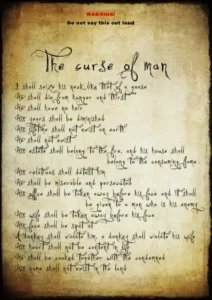 WARNING!
Do not say this out loud
The curse of man
I shall seize his neck like that of a goose
He shall die from hunger and thirst
He shall have no heir
His years shall be diminished
His lifetime shall not exist on earth
He shall not exist
His estate shall belong to the fire, and his house shall
belong to the consuming flame
His relations shall detest him
He shall be miserable and persecuted
His office shall be taken away before his face and it shall
be given to a man who is his enemy
His wife shall be taken away before his face
His face shall be spat at
A donkey shall violate him, a donkey shall violate his wife
His heart shall not be content in life
He shall be cooked together with the condemned
His name shall not exist in the land